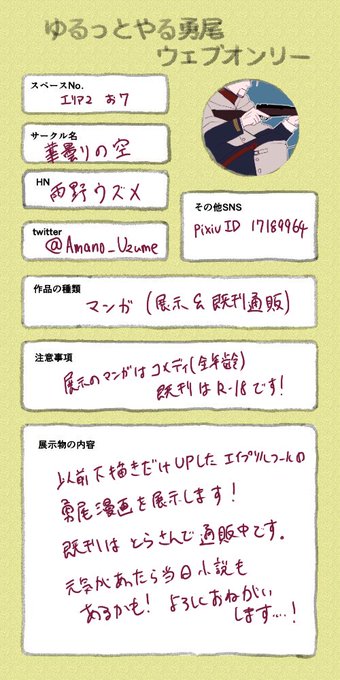 ゆるっとやる勇尾
ウェブオンリー
スペースNo.
エリア2 お7
サークル名
華曇りの空
HN
雨野ウズメ
twitter
@Amano_Uzume
その他SNS
pixiv ID 17189964
作品の種類
マンガ (展示&既刊通販)
注意事項
展示のマンガはコメディ(全年齢)
既刊はR-18です!
展示物の内容
以前下描きだけUPしたエイプリルフールの
勇尾漫画を展示します!
既刊はとらさんで通販中です。
元気があったら当日小説も
あるかも! よろしくおねがい
します…!